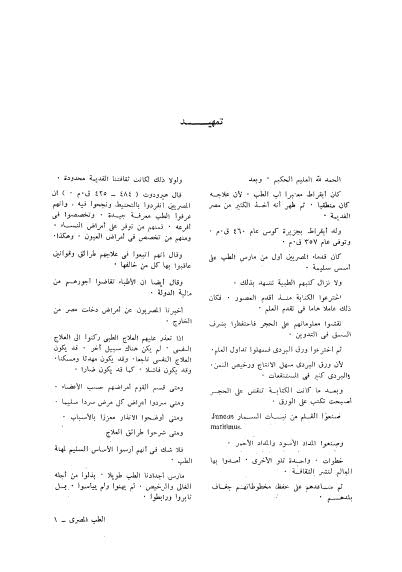 تمهيـــــد
الحمد لله العليم الحكيم ٠ وبعد
كان أبقراط معتبرا أب الطب ٠ لأن علاجه
كان منطقيا ٠ ثم ظهر أنه أخذ الكثير من مصر
القديمة ٠
ولد أبقراط بجزيرة كوس عام ٤٦٠ ق٠م ٠
وتوفى عام ٣٥٧ ق٠م ٠
كان قدماء المصريين أول من مارس الطب على
أسس سليمة ٠
ولا تزال كتبهم الطبية تشهد بذلك ٠
اخترعوا الكتابة منذ أقدم العصور ٠ فكان
ذلك عاملا هاما فى تقدم العلم ٠
نقشوا معلوماتهم على الحجر فاحتفظوا بشرف
السبق فى التدوين ٠
ثم اخترعوا ورق البردى فسهلوا تداول العلم ٠
لأن ورق البردى سهل الانتاج ورخيص الثمن ٠
والبردى كثير فى المستنقعات ٠
وبعد ما كانت الكتابة تنقش على الحجر
أصبحت تكتب على الورق ٠
صنعوا القلم من نبات السمار Juncus
maritimus.
وصنعوا المداد الأسود والمداد الأحمر ٠
خطوات ٠ واحدة تلو الأخرى ٠ أسدوا بها
العالم لنشر الثقافة ٠
ثم ساعدهم على حفظ مخطوطاتهم جفاف
بلدهم ٠
ولولا ذلك لكانت ثقافتنا القديمة محدودة ٠
قال هيرودوت ( ٤٨٤ ــ ٤٢٥ ق٠م ٠ ) ان
المصريين انفردوا بالتحنيط ونجحوا فيه ٠ وأنهم
عرفوا الطب معرفة جيدة ٠ وتخصصوا فى
أفرعه ٠ فمنهم من توفر على أمراض النساء ٠
ومنهم من تخصص فى أمراض العيون ٠ وهكذا ٠
وقال انهم اتبعوا فى علاجهم طرائق وقوانين
عاقبوا بها كل من خالفها ٠
وقال أيضا ان الأطباء تقاضوا أجورهم من
مالية الدولة ٠
أخبرنا المصريون عن أمراض دخلت مصر من
الخارج ٠
اذا تعذر عليهم العلاج الطبى ركنوا الى العلاج
النفسى ٠ لم يكن هناك سبيل آخر ٠ قد يكون
العلاج النفسى ناجعا ٠ وقد يكون مهدئا ومسكنا ٠
وقد يكون فاشلا ٠ كما قد يكون ضارا ٠
ومتى قسم القوم أمراضهم حسب الأعضاء ٠
ومتى سردوا أعراض كل مرض سردا سليما ٠
ومتى أوضحوا الانذار معززا بالأسباب ٠
ومتى شرحوا طرائق العلاج
فلا شك فى أنهم أرسوا الأساس السليم لمهنة
الطب ٠
مارس أجدادنا الطب طويلا ٠ بذلوا من أجله
الغالى والرخيص ٠ لم يهنوا ولم ييأسوا ٠ بل
ثابروا ورابطوا ٠
الطب المصرى ــ ١